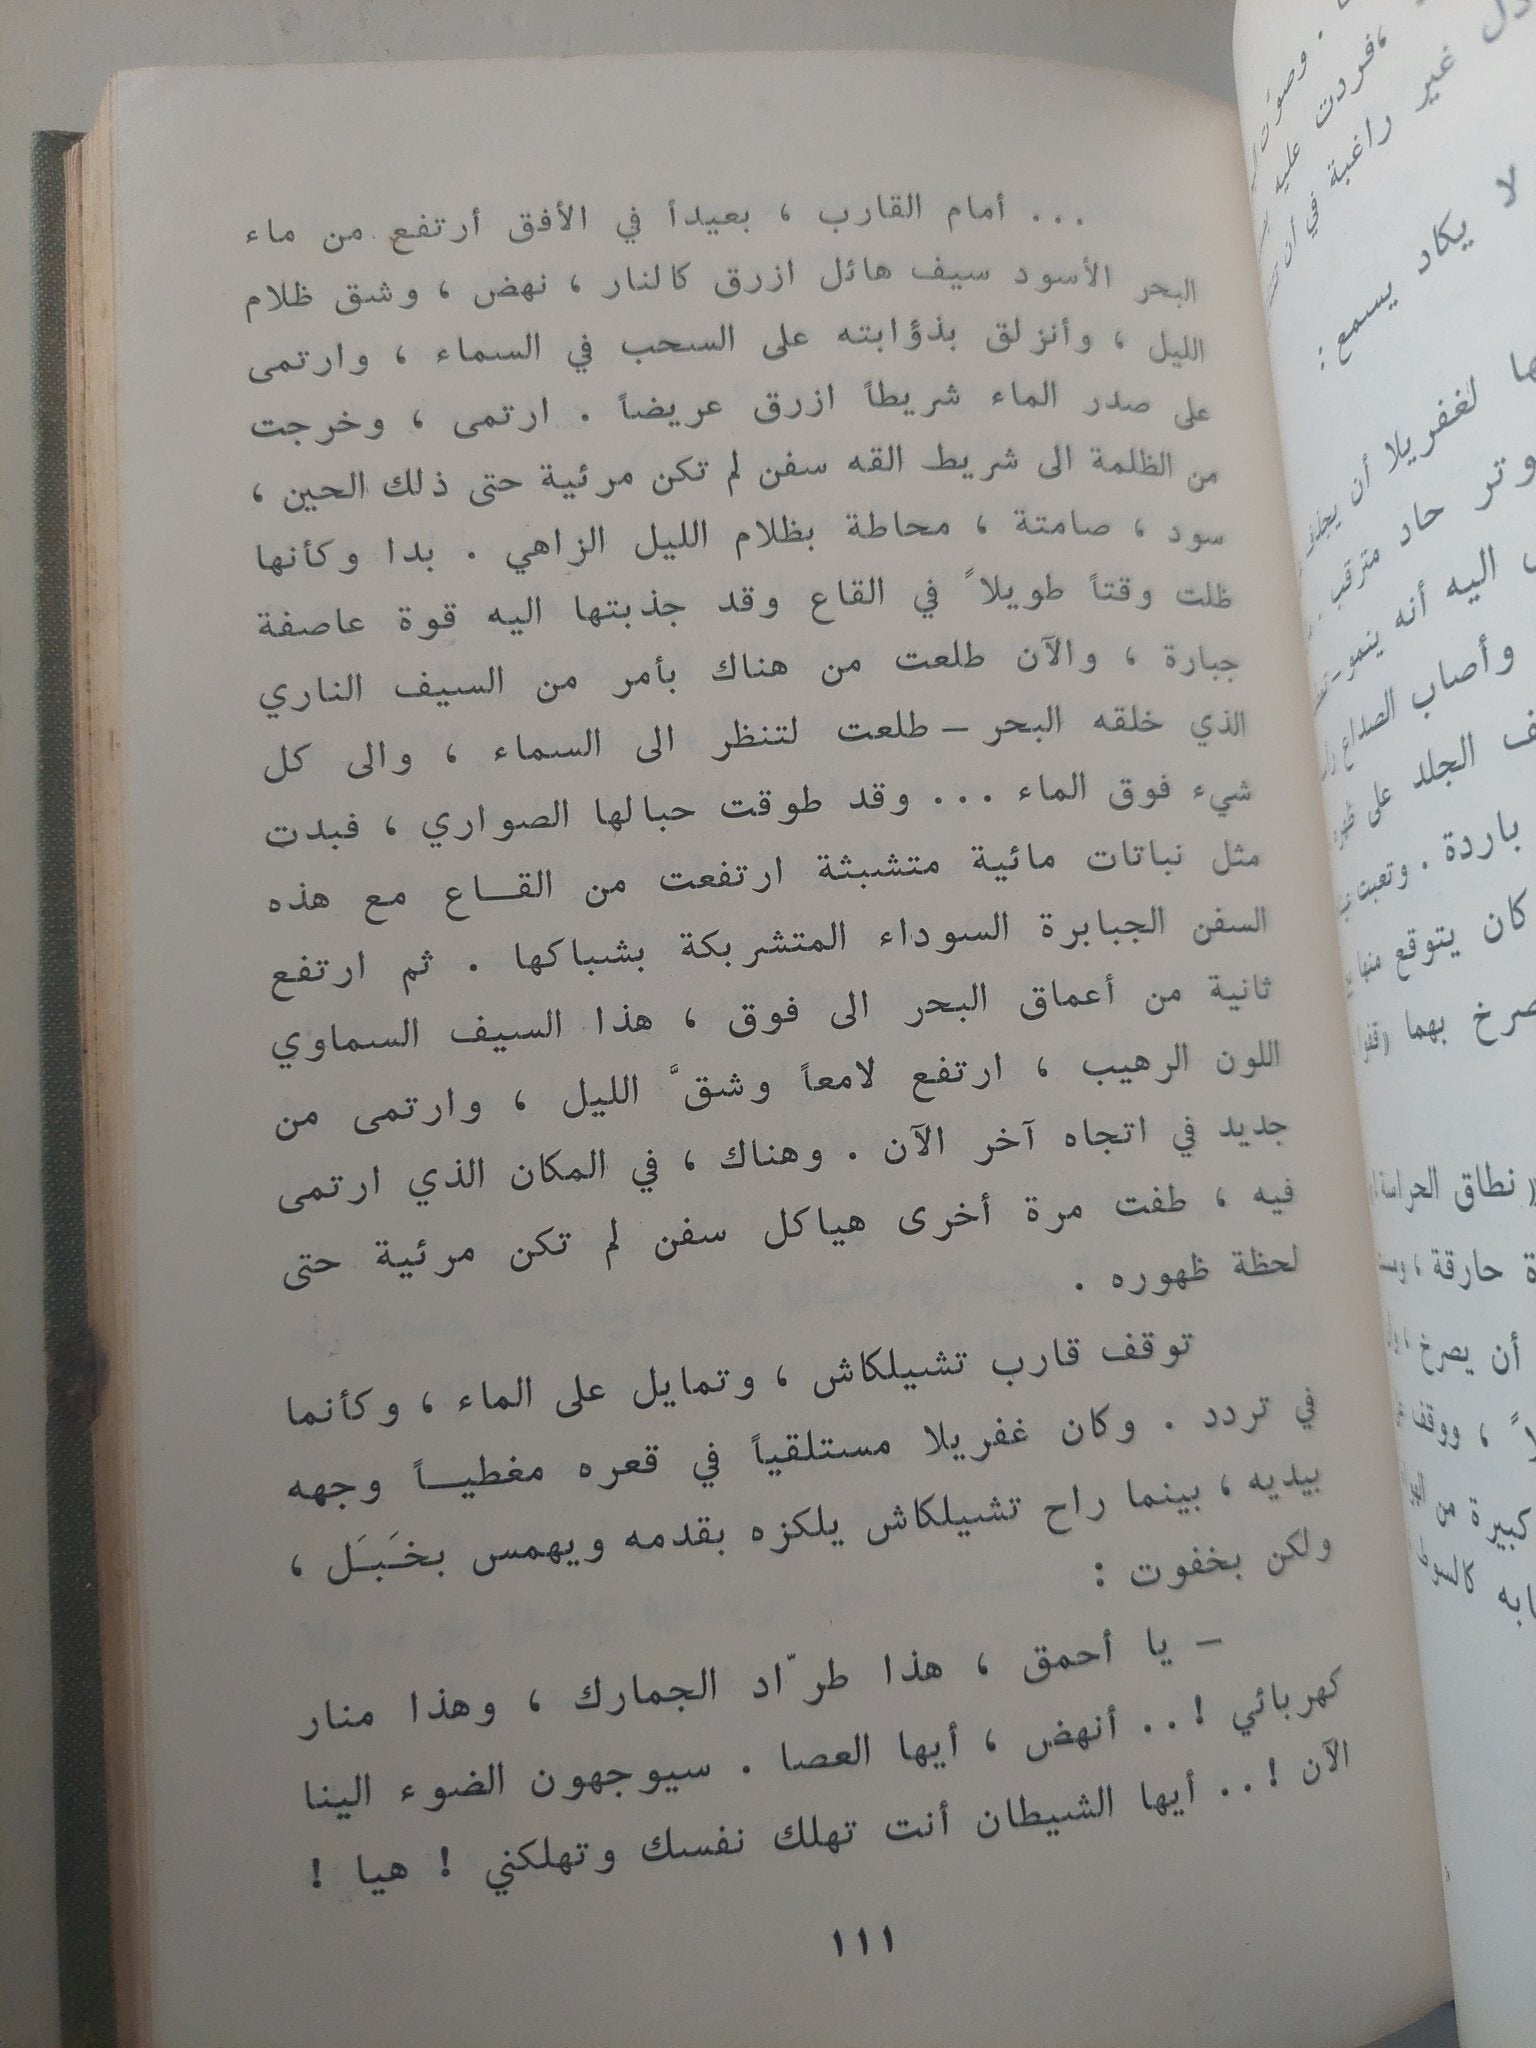 ... أمام القارب ، بعيداً في الأفق أرتفع من ماء
البحر الأسود سيف هائل ازرق كالنار ، نهض ، وشق ظلام
الليل ، وأنزلق بذؤابته على السحب في السماء ، وارتمى
على صدر الماء شريطاً ازرق عريضاً . ارتمى ، وخرجت
من الظلمة الى شريط القه سفن لم تكن مرئية حتى ذلك الحين ،
سود ، صامتة ، محاطة بظلام الليل الزاهي . بدا وكأنها
ظلت وقتاً طويلاً في القاع وقد جذبتها اليه قوة عاصفة
جبارة ، والآن طلعت من هناك بأمر من السيف الناري
الذي خلقه البحر – طلعت لتنظر الى السماء ، والى كل
شيء فوق الماء ... وقد طوقت حبالها الصواري ، فبدت
مثل نباتات مائية متشبثة ارتفعت من القاع مع هذه
السفن الجبابرة السوداء المتشربكة بشباكها . ثم ارتفع
ثانية من أعماق البحر الى فوق ، هذا السيف السماوي
اللون الرهيب ، ارتفع لامعاً وشقَّ الليل ، وارتمى من
جديد في اتجاه آخر الآن . وهناك ، في المكان الذي ارتمى
فيه ، طفت مرة أخرى هياكل سفن لم تكن مرئية حتى
لحظة ظهوره .
توقف قارب تشيلكاش ، وتمايل على الماء ، وكأنما
في تردد . وكان غفريلا مستلقياً في قعره مغطياً وجهه
بيديه ، بينما راح تشيلكاش يلكزه بقدمه ويهمس بخَبَل ،
ولكن بخفوت :
– يا أحمق ، هذا طرّاد الجمارك ، وهذا منار
كهربائي !.. أنهض ، أيها العصا . سيوجهون الضوء الينا
الآن !.. أيها الشيطان أنت تهلك نفسك وتهلكني ! هيا !
١١١
فردت عليه
غير راغبة في أن
لا يكاد يسمع :
لغفريلا أن يجذف
وتر حاد مترقب .
اليه أنه ينمو
وأصاب الصداع
الجلد على
باردة . وتعبت
كان يتوقع منها
بهما
نطاق الحراسة
حارقة ،
أن يصرخ ،
، ووقف
كبيرة من
كالسوط